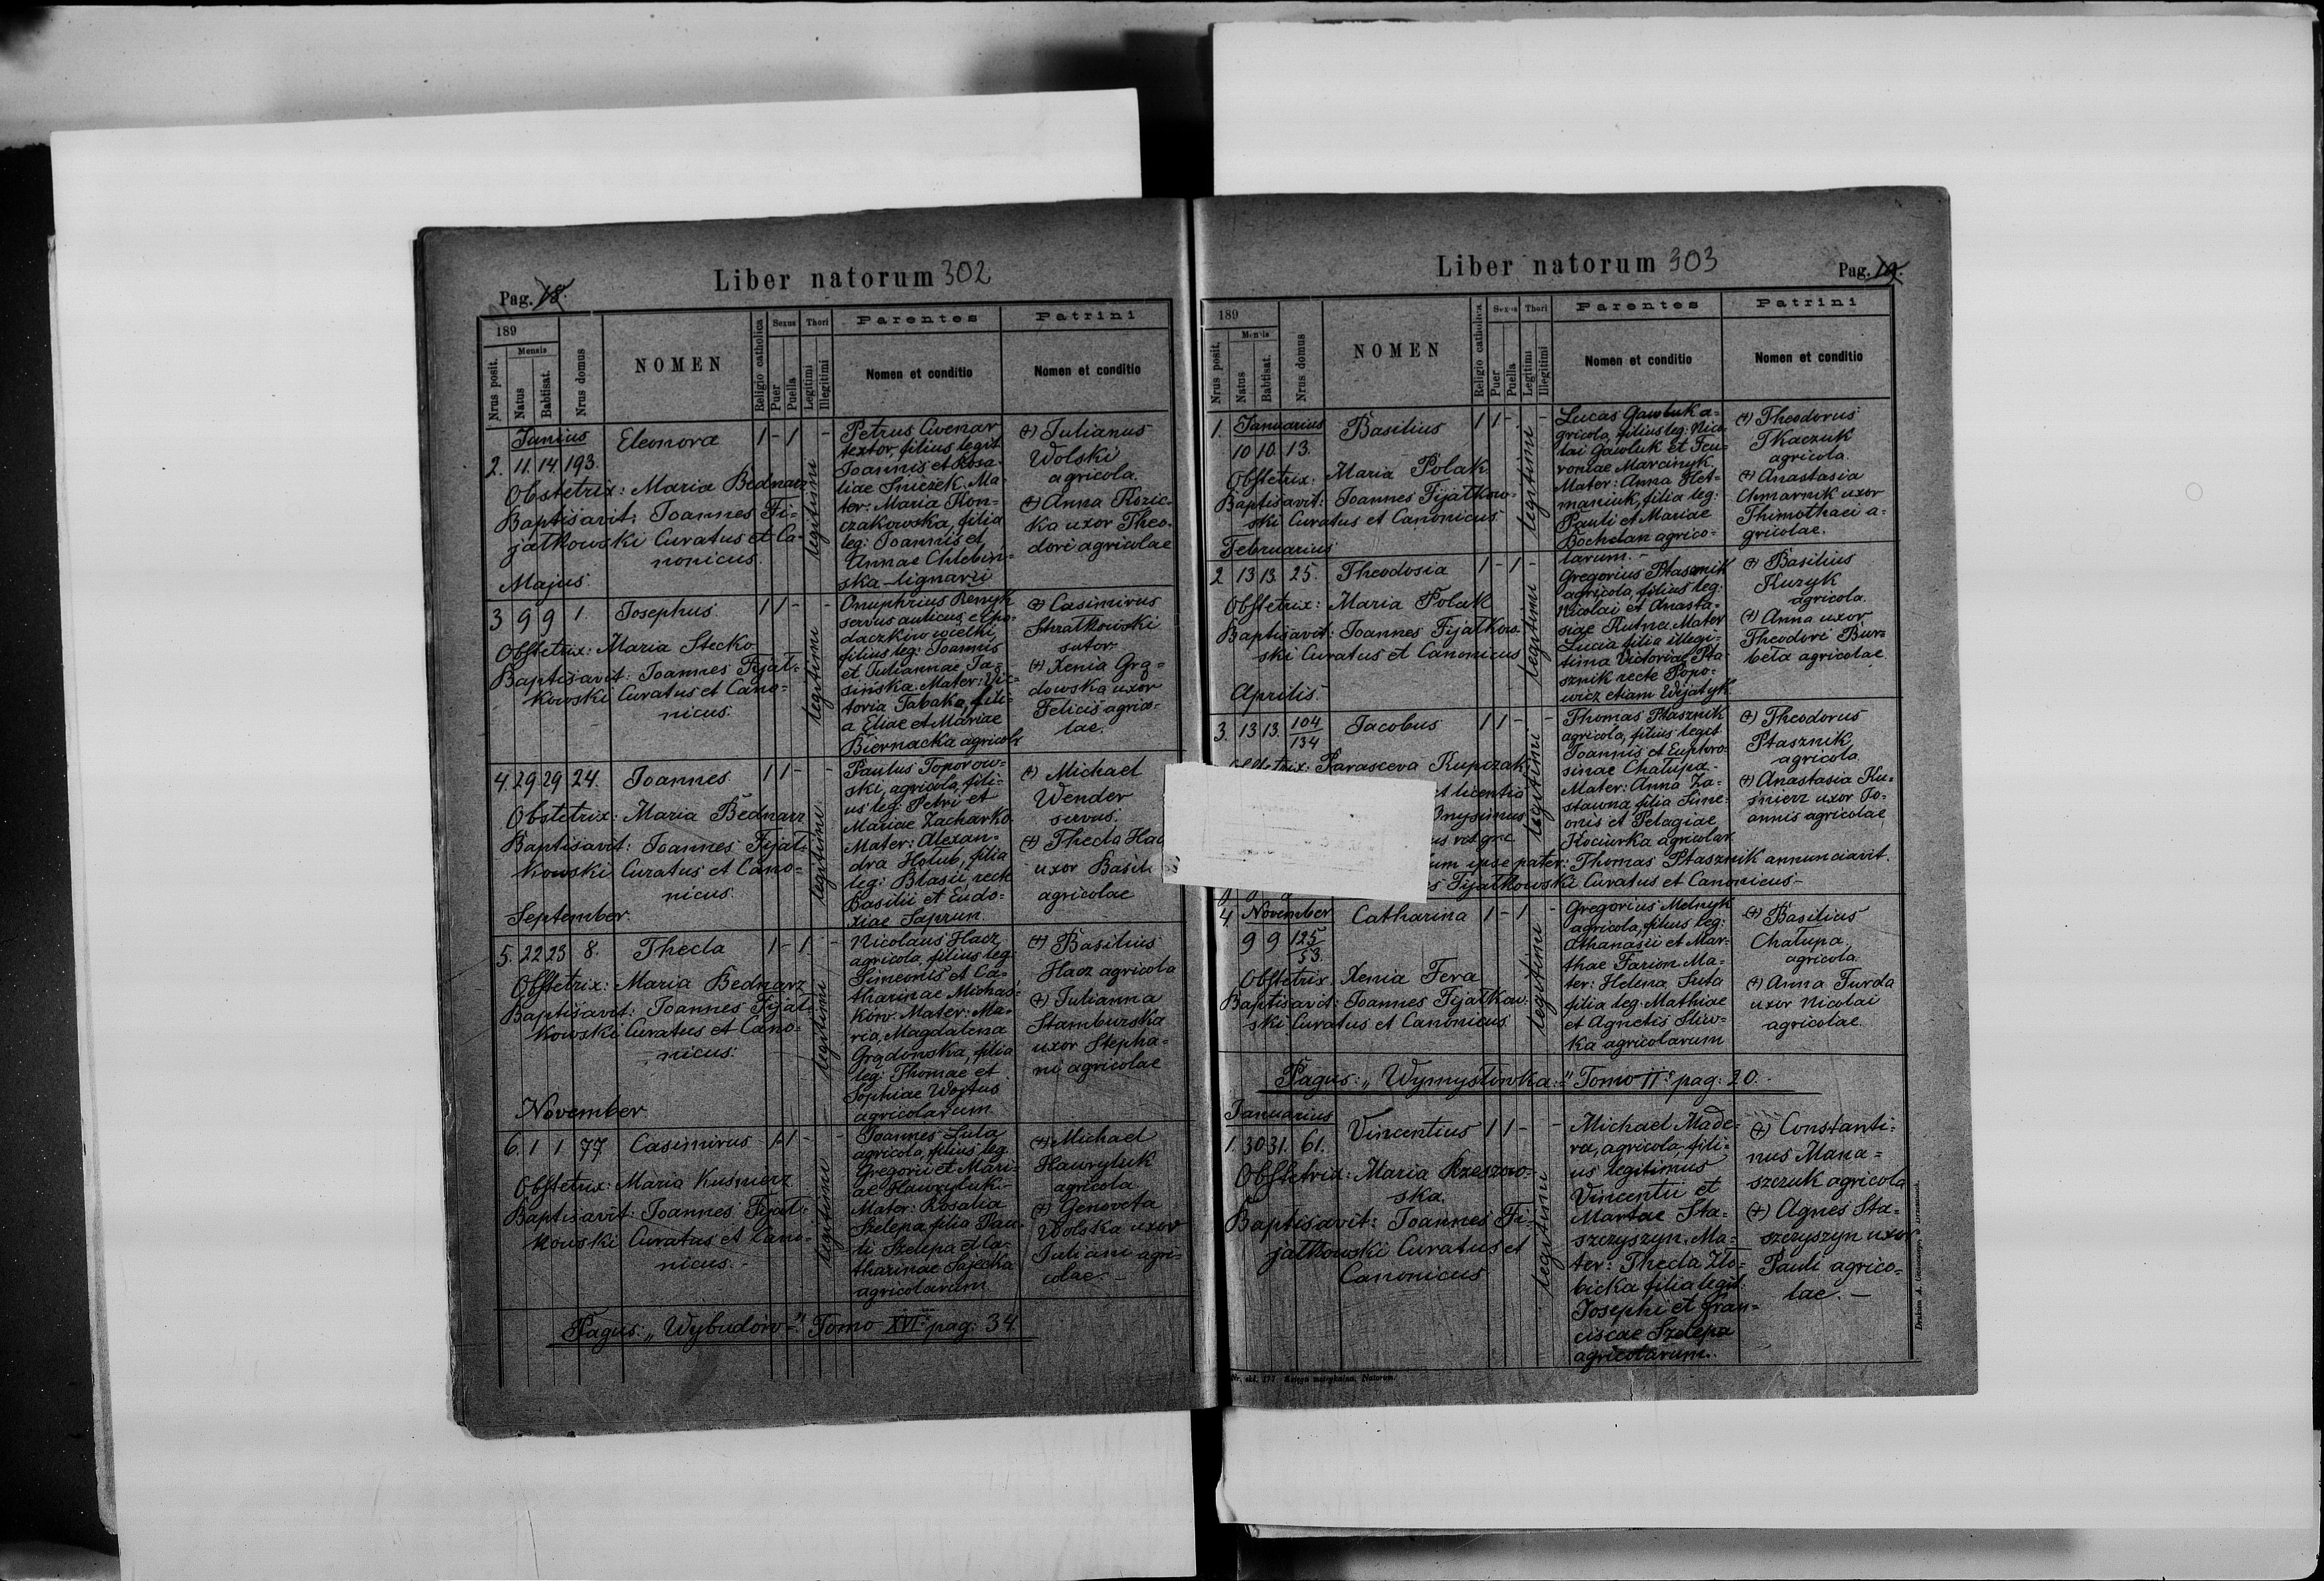 Liber natorum 302
Pag. 18.
189
Nrus posit.
Mensis
Natus
Babtisat.
Nrus domus
NOMEN
Religio catholica
Sexus
Puer
Puella
Thori
Legitimi
Illegitimi
Parentes
Nomen et conditio
Patrini
Nomen et conditio
Junius
2. 11. 14. 193. Eleonora 1 - 1 -
legitimi
Obstetrix: Maria Bednarz
Baptisavit: Joannes Fi=
jałkowski Curatus et Ca=
nonicus.
Petrus Cwenar
textor, filius legit
Joannis et Rosa=
liae Smeczek. Ma=
ter: Maria Kon=
czakowska, filia
leg: Joannis et
Annae Chlebin=
ska - lignarii
(+) Julianus
Wolski
agricola.
(+) Anna Kozic=
ka uxor Theo=
dori agricolae
Majus.
3 9 9 1. Josephus 1 1 - -
legitimi
Obstetrix: Maria Stecko
Baptisavit: Joannes Fijał=
kowski Curatus et Cano=
nicus.
Onuphrius Renyk
servus aulicus e Ho=
daczków wielki,
filius leg: Joannis
et Juliannae Ja=
sińska. Mater: Vic=
toria Tabaka, fili=
a Eliae et Mariae
Biernacka agricol:
(+) Casimirus
Shratkowski
sutor.
(+) Xenia Grą=
dowska uxor
Felicis agrico=
lae.
4. 29 29 24. Joannes 1 1 - -
legitimi
Obstetrix: Maria Bednarz
Baptisavit: Joannes Fijał=
kowski Curatus et Cano=
nicus.
Paulus Toporow=
ski, agricola, fili=
us leg: Petri et
Mariae Zacharko.
Mater: Alexan=
dra Hołub, filia
leg: Blasii, recte
Basilii et Eudo=
xiae Saprun.
(+) Michael
Wender
servus.
(+) Thecla
uxor
agricolae
September.
5. 22 23 8. Thecla 1 - 1. -
legitimi
Obstetrix: Maria Bednarz
Baptisavit: Joannes Fijał=
kowski Curatus et Cano=
nicus.
Nicolaus Hacz
agricola, filius leg:
Simeonis et Ca=
tharinae Michas=
ków. Mater: Ma=
ria, Magdalena
Grądowska, filia
leg: Thomae et
Sophiae Wojtus
agricolarum.
(+) Basilius
Hacz agricola
(+) Julianna
Stamburska
uxor Stepha=
ni agricolae
November.
6. 1 1 77 Casimirus 1 1 - -
legitimi
Obstetrix: Maria Kuśnierz
Baptisavit: Joannes Fijał=
kowski Curatus et Cano=
nicus.
Joannes Lula
agricola, filius leg
Gregorii et Mari=
ae Hawryluk.
Mater: Rosalia
Szelepa, filia Pau=
li Szelepa et Ca=
tharinae Sajecka
agricolarum.
(+) Michael
Hawryluk
agricola.
(+) Genovefa
Wolska uxor
Juliani agri=
colae. -
Pagus: „Wybudów." Tomo XVI pag: 34.
Liber natorum 303
Pag. 19.
189
Nrus posit.
Mensis
Natus
Babtisat.
Nrus domus
NOMEN
Religio catholica
Sexus
Puer
Puella
Thori
Legitimi
Illegitimi
Parentes
Nomen et conditio
Patrini
Nomen et conditio
Januarius
1. 10 10. 13. Basilius 1 1 - -
legitimi
Obstetrix: Maria Polak
Baptisavit: Joannes Fijałkow=
ski Curatus et Canonicus.
Lucas Gawluk a=
gricola, filius leg: Nico=
lai Gawluk et Feu=
roniae Marcinyk.
Mater: Anna Het=
maniuk, filia leg:
Pauli et Mariae
Bochdan agrico=
larum. -
(+) Theodorus
Tkaczuk
agricola.
(+) Anastasia
Chmarnik uxor
Thimothaei a=
gricolae.
Februarius
2 13 13. 25. Theodosia 1 - 1 -
legitimi
Obstetrix: Maria Polak
Baptisavit: Joannes Fijałkow=
ski Curatus et Canonicus
Gregorius Ptasznik
agricola, filius leg:
Nicolai et Anasta=
siae Kutna. Mater
Lucia filia illegi=
tima Victoriae Pta=
sznik recte Popo=
wicz etiam Wijatyk
(+) Basilius
Kuzyk
agricola.
(+) Anna uxor
Theodori Bur=
beła agricolae.
Aprilis.
3. 13 13. 104/134 Jacobus 1 1 - -
legitimi
Obstetrix: Parasceva Kupczak
et licentia
Onysimus
um ipse pater: Thomas Ptasznik annunciavit.
Fijałkowski Curatus et Canonicus -
Thomas Ptasznik
agricola, filius legit
Joannis et Euphro=
sinae Chałupa.
Mater: Anna Za=
stawna filia Sime=
onis et Pelagiae
Kociurka agricolar
(+) Theodorus
Ptasznik
agricola
(+) Anastasia Ku=
śnierz uxor Jo=
annis agricolae
4. November Catharina 1 - 1 -
9 9 125/53
legitimi
Obstetrix: Xenia Fera
Baptisavit: Joannes Fijałkow=
ski Curatus et Canonicus.
Gregorius Melnyk
agricola, filius leg:
Athanasii et Mar=
thae Farion. Ma=
ter: Helena Suta
filia leg: Mathiae
et Agnetis Sliw=
ka agricolarum
(+) Basilius
Chałupa
agricola.
(+) Anna Furda
uxor Nicolai
agricolae.
Pagus: „Wymysłówka." Tomo II pag: 20. -
Januarius
1. 30 31. 61. Vincentius 1 1 - -
legitimi
Obstetrix: Maria Rzeszow=
ska.
Baptisavit: Joannes Fi=
jałkowski Curatus et
Canonicus
Michael Made=
ra, agricola, fili=
us legitimus
Vincentii et
Martae Sta=
szczyszyn. Ma=
ter: Thecla Zło=
bicka filia legit:
Josephi et Fran=
ciscae Szelepa
agricolarum.
(+) Constanti=
nus Mana=
szczuk agricola
(+) Agnes Sta=
szczyszyn uxor
Pauli agrico=
lae. -